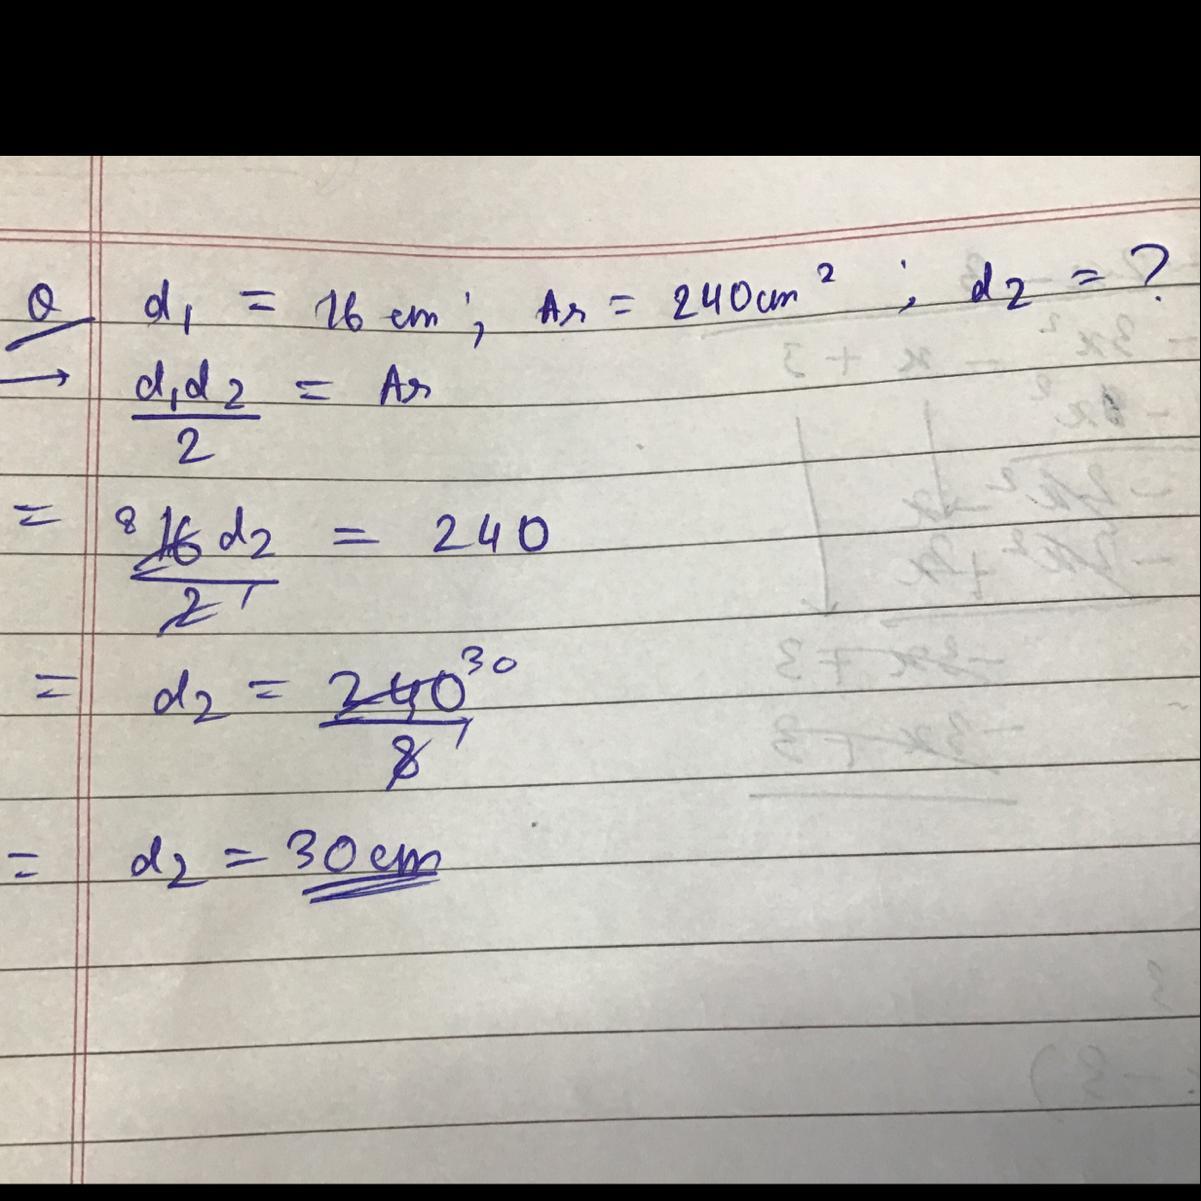 Q d₁ = 16 cm ; Ar = 240cm² ; d₂ = ?
→ d₁d₂/2 = Ar
= 8 16 d₂ / 2 1 = 240
= d₂ = 240 30 / 8 1
= d₂ = 30cm